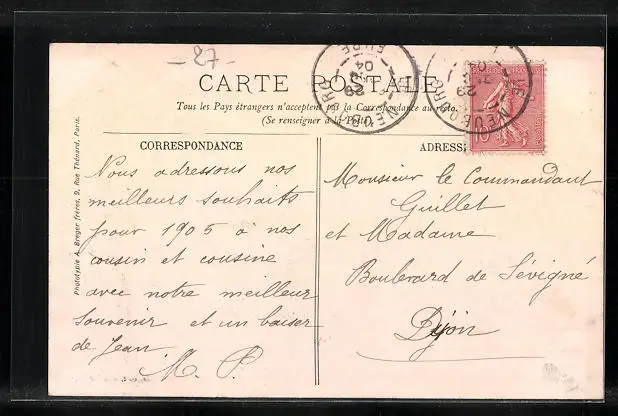 -27-
CARTE POSTALE
Tous les Pays étrangers n'acceptent pas la Correspondance au recto.
(Se renseigner à la Poste)
CORRESPONDANCE
Nous adressons nos
meilleurs souhaits
pour 1905 à nos
cousin et cousine
avec notre meilleur
souvenir et un baiser
de Jean
M. P.
ADRESSE
Monsieur le Commandant
Guillet
et Madame
Boulevard de Sévigné
Dijon
Phototypie A. Breger frères, 9, Rue Thénard, Paris.
LE NEUBOURG
EURE
29
04
LE NEUBOURG
29
10